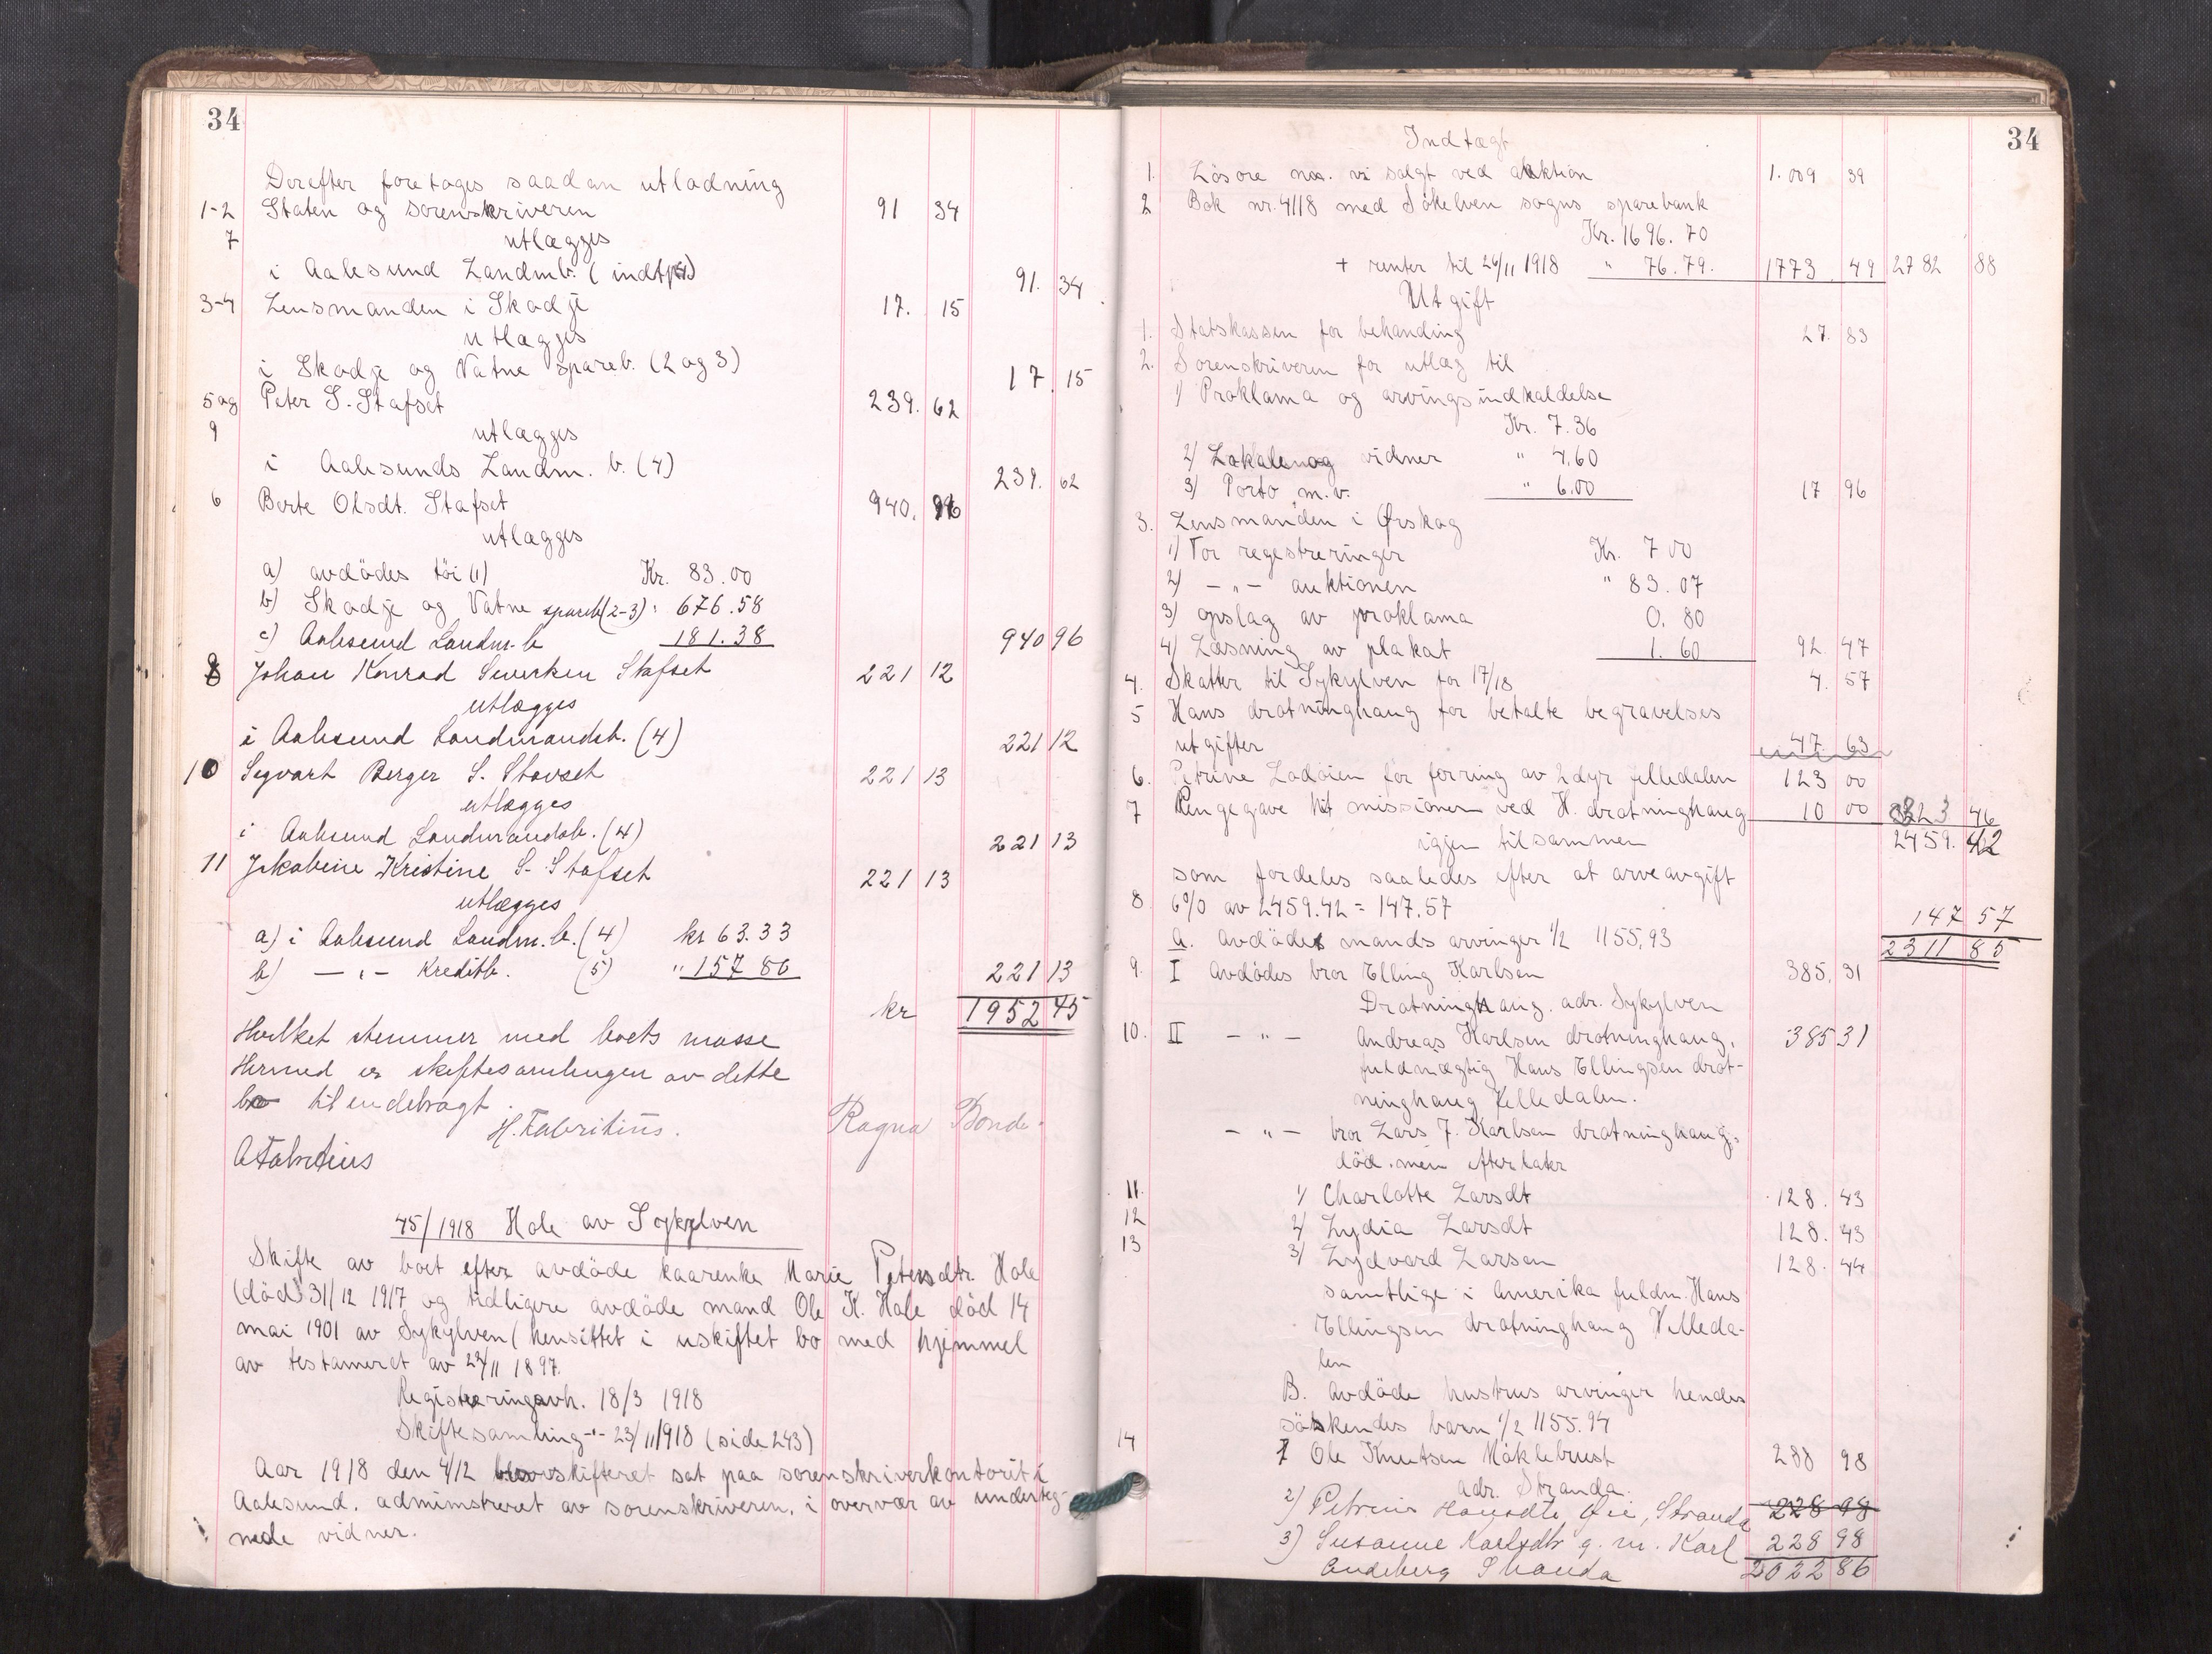 34
Derefter foretages saadan utlodning
1-2 Staten og sorenskriveren 91 34
7 utlægges
i Aalesund Landmb. ( indtpr) 91. 34
3-4 Lensmanden i Skodje 17. 15
utlægges
i Skodje og Vatne spareb. (2 og 3) 17. 15
5 og Peter S. Stafset 239. 62
9 utlægges
i Aalesunds Landm. b. (4) 239. 62
6 Berte Olsdt. Stafset 940. 96
utlægges
a) avdødes tøi (1) Kr. 83.00
b) Skodje og Vatne spareb(2-3) " 676.58
c) Aalesund Landm. b 181.38 940 96
8 Johan Konrad Severksen Stafset 221 12
utlægges
i Aalesund Landmandsb. (4) 221 12
10 Segvart Berger S. Stavset 221 13
utlægges
i Aalesund Landmandsb. (4) 221 13
11 Jakobine Kristine S. Stafset 221 13
utlægges
a) i Aalesund Landm. b. (4) kr 63.33
b) — " — Kreditb. (5) " 157 80 221 13
kr 1952 45
Hvilket stemmer med boets masse
Hermed er skiftesamlingen av dette
bo til endebragt.
H. Fabritius. Ragna Bonde.
A Fabritius
45/1918 Hole av Sykylven
Skifte av boet efter avdøde kaarenke Marie Petersdtr. Hole
(død 31/12 1917 og tidligere avdøde mand Ole K. Hole død 14
mai 1901 av Sykylven (hensittet i uskiftet bo med hjemmel
av testament av 24/11 1897.
Registreringsavh. 18/3 1918
Skiftesamling -"- 23/11 1918 (side 243)
Aar 1918 den 4/12 blev skifteret sat paa sorenskriverkontoret i
Aalesund. administreret av sorenskriveren, i overvær av underteg-
nede vidner.
34
Indtægt
1. Løsøre nos. vi solgt ved auktion 1.009 39
2 Bok nr. 4118 med Søkelven sogns sparebank
Kr. 1696. 70
+ renter til 26/11 1918 " 76.79. 1773. 49 2782 88
Utgift
1. Statskassen for behanding 27. 83
2. Sorenskriveren for utlæg til
1) Proklama og arvingsindkaldelse
Kr. 7.36
2) Lokale og vidner " 4.60
3) Porto m.v. " 6.00 17 96
3. Lensmanden i Ørskog
1) For registreringer Kr. 7 00
2) — " — auktionen " 83.07
3) opslag av proklama 0. 80
4) Læsning av plakat 1. 60 92. 47
4. Skatter til Sykylven for 17/18 4. 57
5 Hans drotninghaug for betalte begravelses
utgifter 47. 63
6. Petrine Ladøien for forring av 2 dyr Velledalen 123 00
7 Pengegave til missionen ved H. drotninghaug 10 00 323 46
igjen tilsammen 2459. 42
som fordeles saaledes efter at arveavgift
8 6% av 2459.42 = 147.57 147 57
A. avdødes mands arvinger 1/2 1155.93 2311 85
9. I Avdødes bror Elling Karlsen 385. 31
Drotninghaug. adr. Sykylven
10. II — " — Andreas Karlsen drotninghaug, 385 31
fuldmægtig Hans Ellingsen drot-
ninghaug Velledalen.
— " — bror Lars J. Karlsen drotninghaug,
død. men efterlater
11. 1) Charlotte Larsdt 128. 43
12 2) Lydia Larsdt 128. 43
13 3) Lydvard Larsen 128. 44
samtlige i Amerika fuldm. Hans
Ellingsen drotninghaug Velleda-
len
B. Avdøde hustrus arvinger hendes
søskendes barn 1/2 1155.94
14 1 Ole Knutsen Maklebust 288 98
adr. Stranda.
2) Petrine Hansdtr Øie, Stranda 228 98
3) Susanne Karlsdtr g. m. Karl 228 98
Andeberg Stranda 2022 86